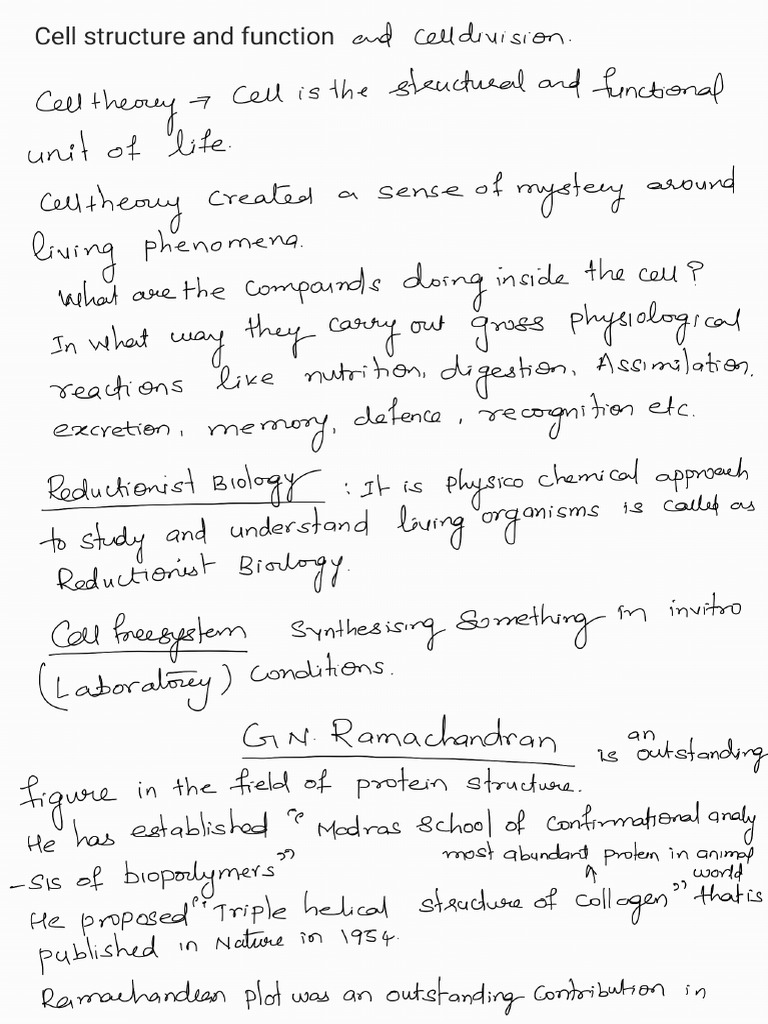 Cell structure and function and cell division.
Cell theory → Cell is the structural and functional
unit of life.
Cell theory created a sense of mystery around
living phenomena.
What are the compounds doing inside the cell?
In what way they carry out gross physiological
reactions like nutrition, digestion, Assimilation,
excretion, memory, defence, recognition etc.
Reductionist Biology : It is physico chemical approach
to study and understand living organisms is called as
Reductionist Biology.
Cell free system Synthesising Something in invitro
(Laboratory) Conditions.
G.N. Ramachandran is an outstanding
figure in the field of protein structure.
He has established "Madras School of Confirmational analy
-sis of bioporlymers"
most abundant protein in animal world
He proposed "Triple helical structure of collagen" that is
published in Nature in 1954.
Ramachandran plot was an outstanding contribution in